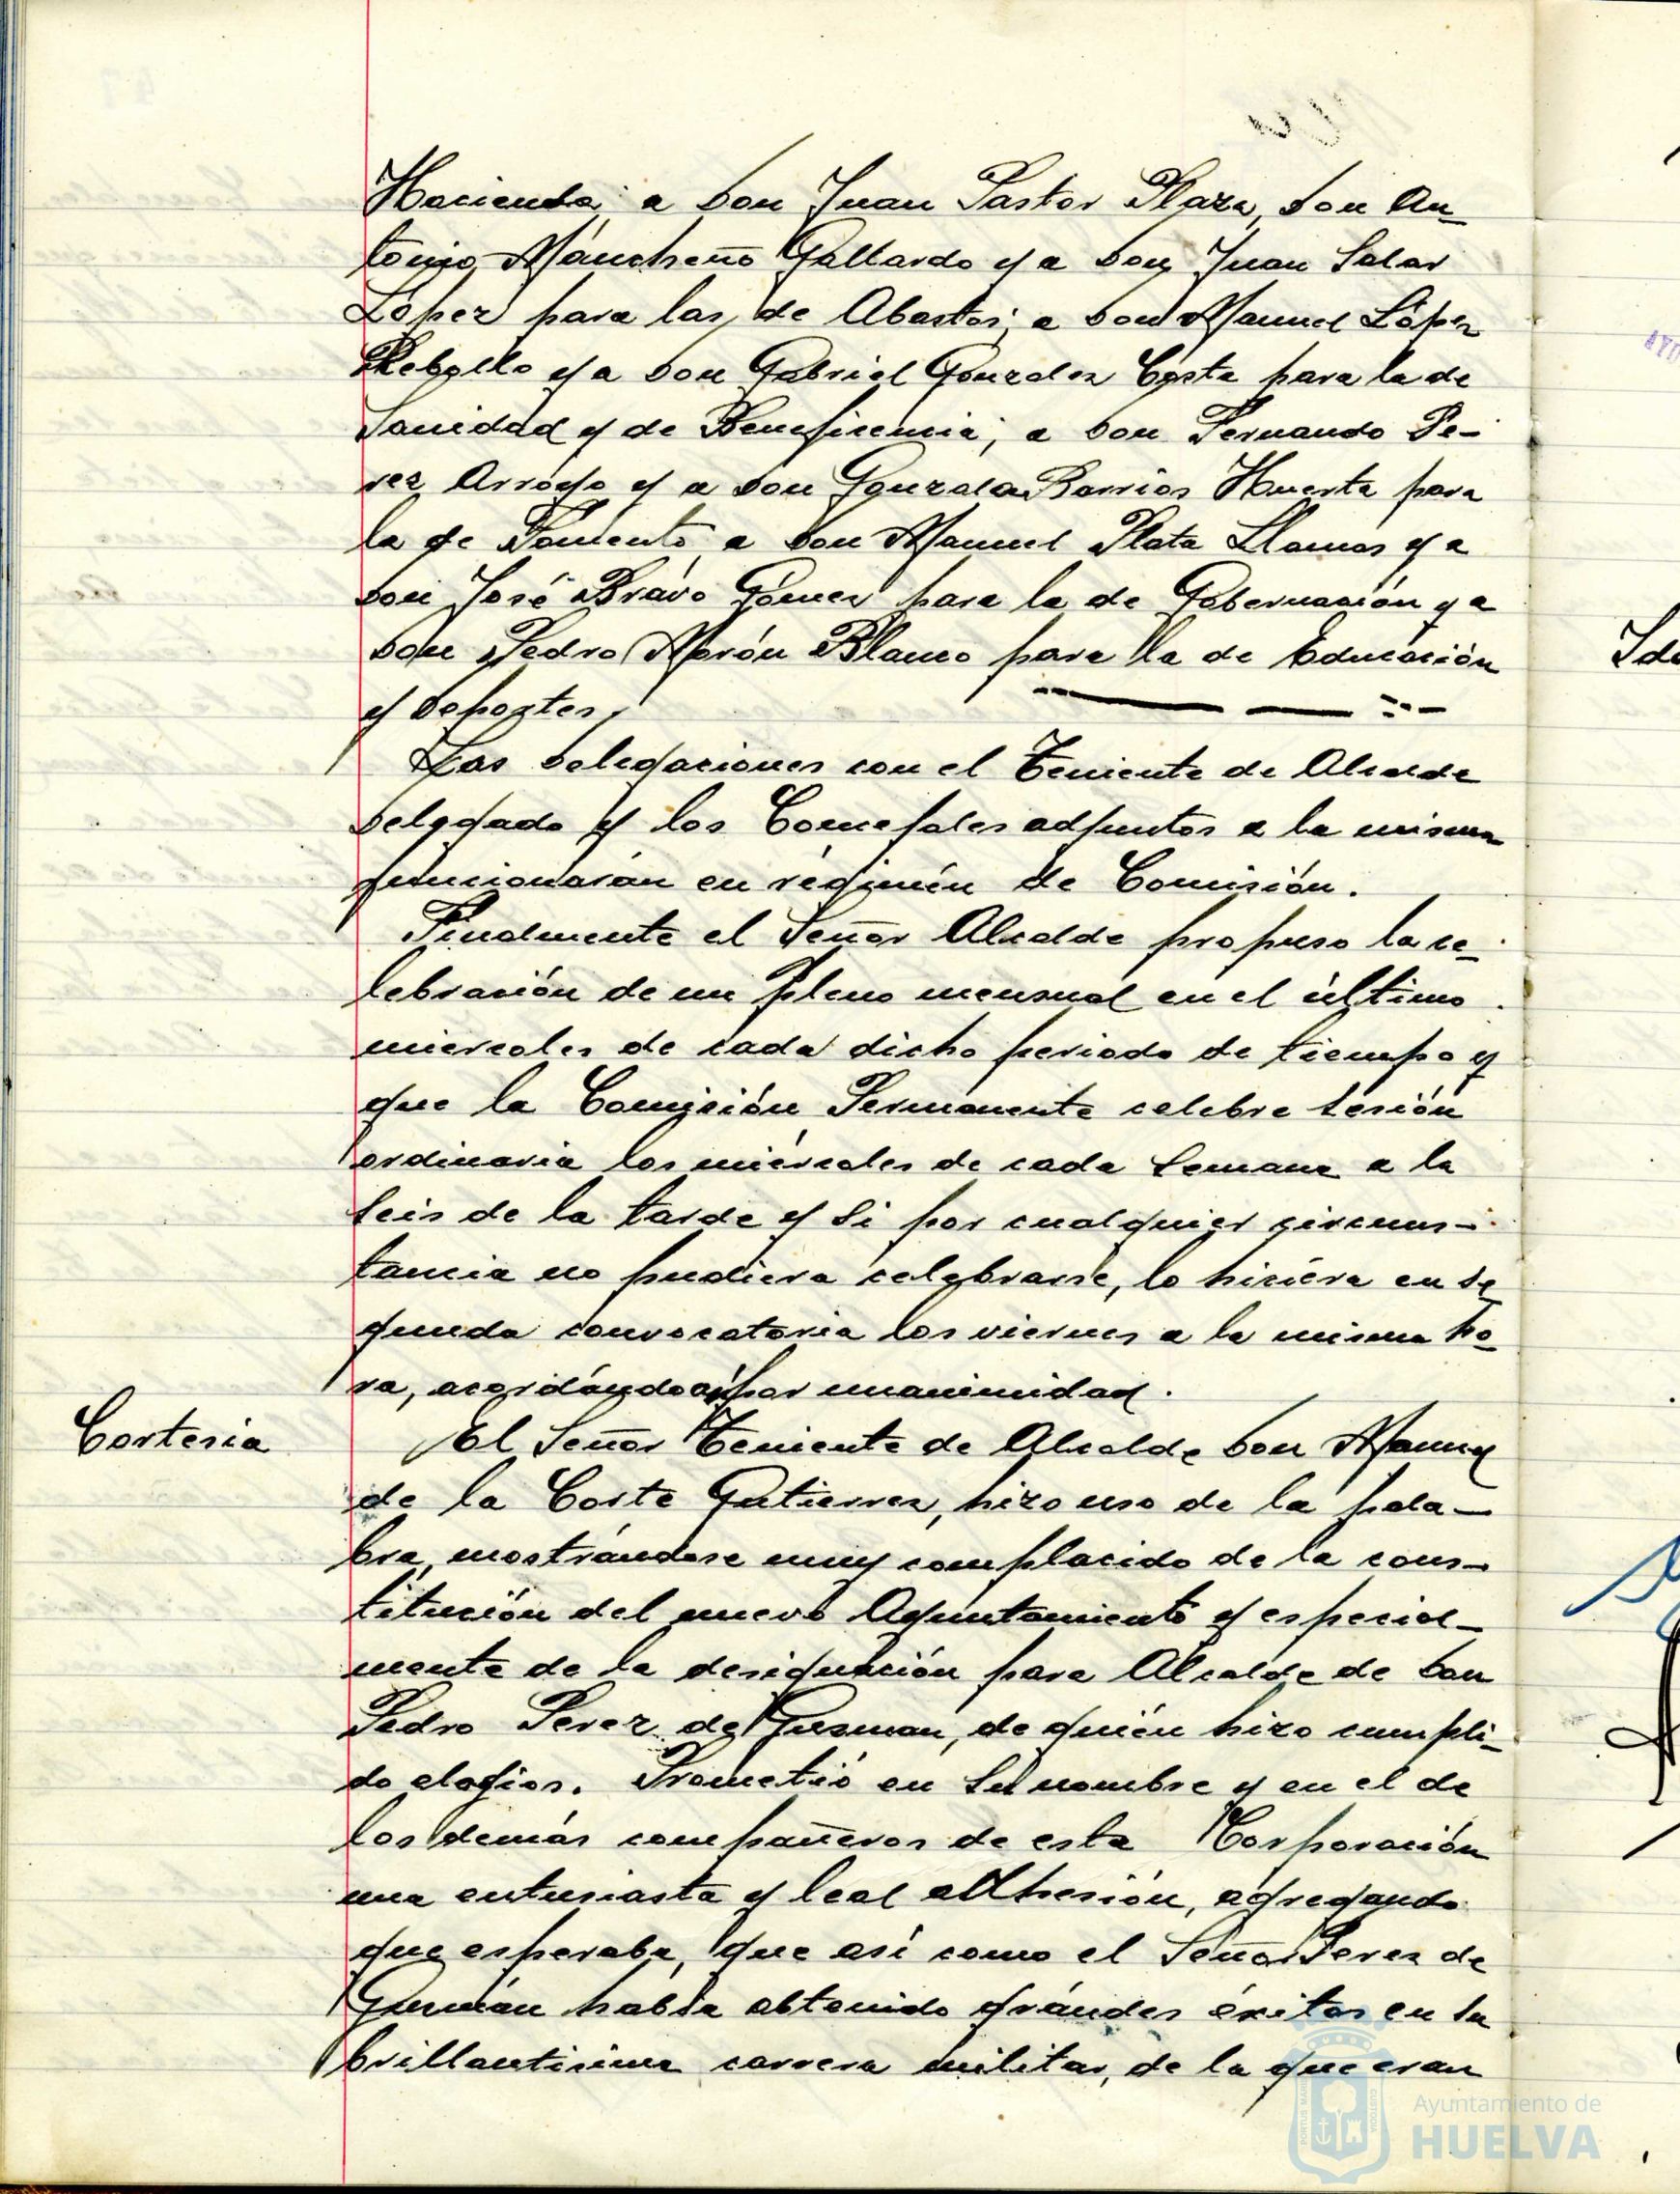 Hacienda; a Don Juan Pastor Plaza, Don An-
tonio Mancheño Gallardo y a Don Juan Salar
López para las de Abastos; a Don Manuel López
Rebollo y a Don Gabriel Gonzalez Costa para la de
Sanidad y de Beneficencia; a Don Fernando Pe-
rez Arroyo y a Don Gonzalo Barrios Huerta para
la de Fomento, a Don Manuel Plata Llamas y a
Don José Bravo Gómez para la de Gobernación y a
Don Pedro Morón Blanco para la de Educación
y Deportes,
Las Delegaciones con el Teniente de Alcalde
Delegado y los Concejales adjuntos a la misma
funcionarán en régimen de Comisión.
Finalmente el Señor Alcalde propuso la ce-
lebración de un pleno mensual en el último
miércoles de cada dicho periodo de tiempo y
que la Comisión Permanente celebre sesión
ordinaria los miércoles de cada semana a la
seis de la tarde y si por cualquier circuns-
tancia no pudiera celebrarse, lo hiciera en se
gunda convocatoria los viernes a la misma ho-
ra, acordándo así por unanimidad.
Cortesia
El Señor Teniente de Alcalde Don Manuel
de la Corte Gutierrez, hizo uso de la pala-
bra, mostrándose muy complacido de la cons-
titución del nuevo Ayuntamiento y especial-
mente de la designación para Alcalde de Don
Pedro Perez de Guzman, de quién hizo cumpli-
do elogios. Prometió en su nombre y en el de
los demás compañeros de esta Corporación
una entusiasta y leal adhesión, agregando
que esperaba, que así como el Señor Perez de
Guzmán había obtenido grándes éxitos en su
brillantisima carrera militar, de la que eran
Ayuntamiento de
HUELVA